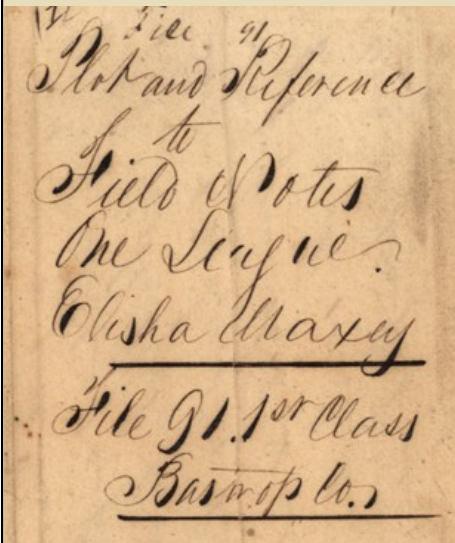 File 91
Plot and Reference
to
Field Notes
One League.
Elisha Maxey
File 91. 1st Class
Bastrop Co.